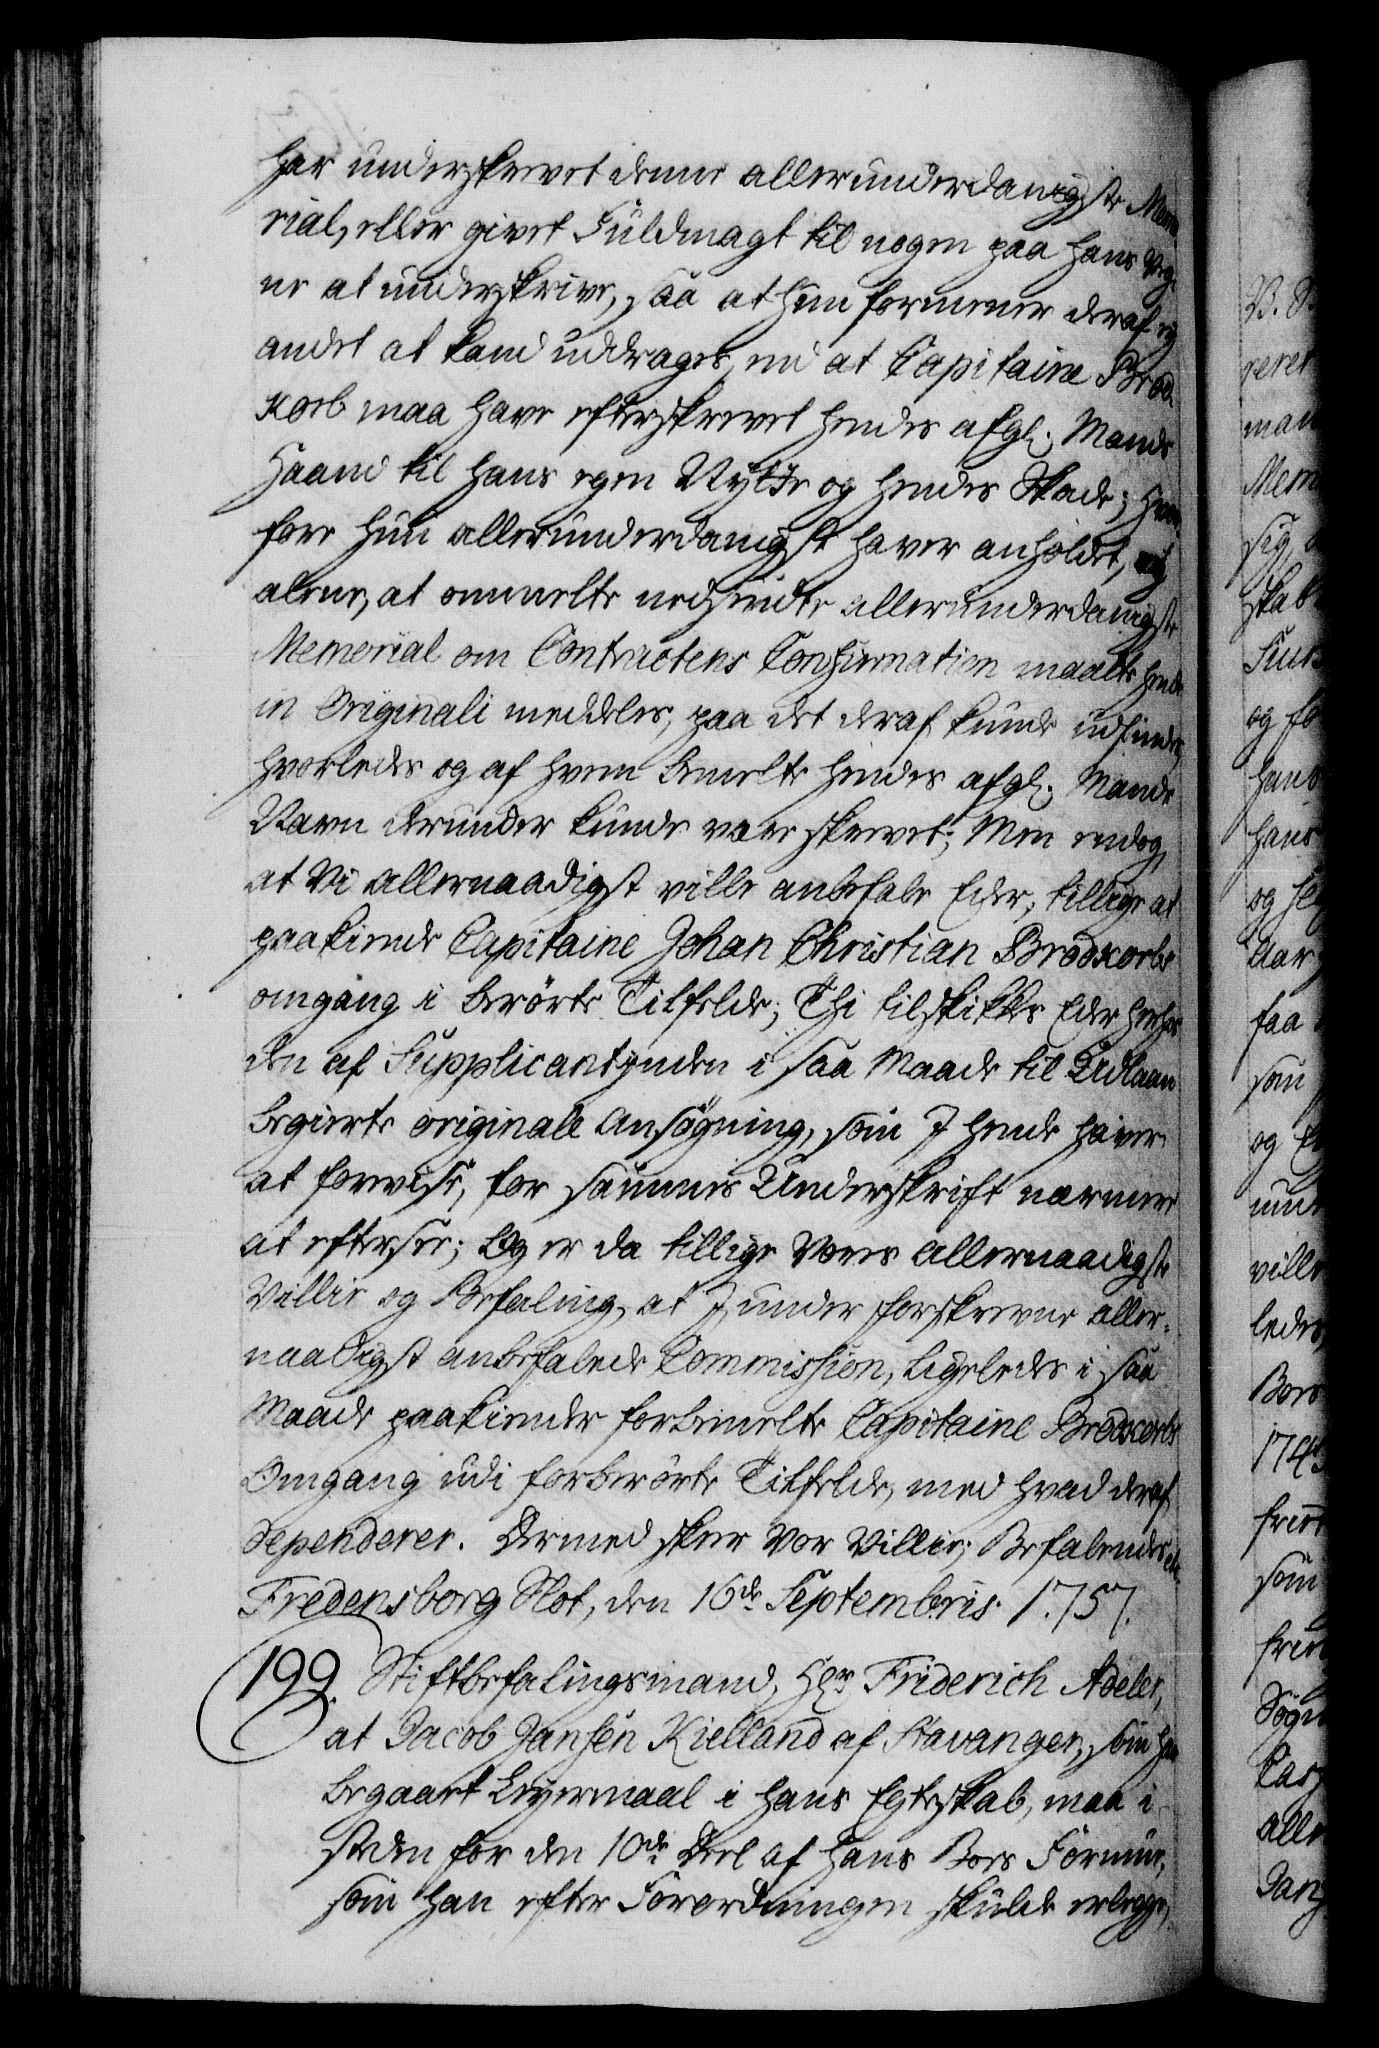 har underskrevet denne allerunderdanigste Memo
rial, eller givet Fuldmagt til nogen paa hans Veg,
ne at underskrive, saa at hun formener deraf ey
andet at kand uddrages, end at Capitaine Brod,
korb maa have efterskrevet hendes afgl. Mands
Haand til hans egen Nytte og hendes Skade; Hvor,
fore hun allerunderdanigst haver anholdet, ey
alene, at ommelte nedsendte allerunderdanigste
Memorial om Contractens Confirmation maatte hende
in Originali meddeles, paa det deraf kunde udfindes,
hvorledes og af hvem bemelte hendes afgl. Mands
Navn derunder kunde være skrevet; Men endog,
at Vi allernaadigst ville anbefale Eder, tillige at
paakiende Capitaine Johan Christian Brodkorbs
omgang i berørte Tilfelde; Thi tilskikkes Eder herhos
den af Supplicantinden i saa Maade til Udlaan
begierte originale Ansøgning, som I hende haver
at forevise, for sammes Underskrift nærmere
at eftersee; Og er da tillige Vores allernaadigste
Villie og Befaling, at I, under forskrevne aller-
naadigst anbefalede Commission, ligeledes i saa
Maade paakiender forbemelte Capitaine Brodkorbs
Omgang udi forberørte Tilfelde, med hvad deraf
dependerer. Dermed skeer Vor Villie; Befalendes etc.
Fredensborg Slot, den 16de Septembris 1757.
199. Stiftbefalingsmand, Hr Friderich Adeler,
at Jacob Jansen Kielland af Stavanger, som har
begaaet Leyermaal i hans Egteskab, maa i
steden for den 10de Deel af hans Boes Formue,
som han efter Forordningen skulde erlegge,